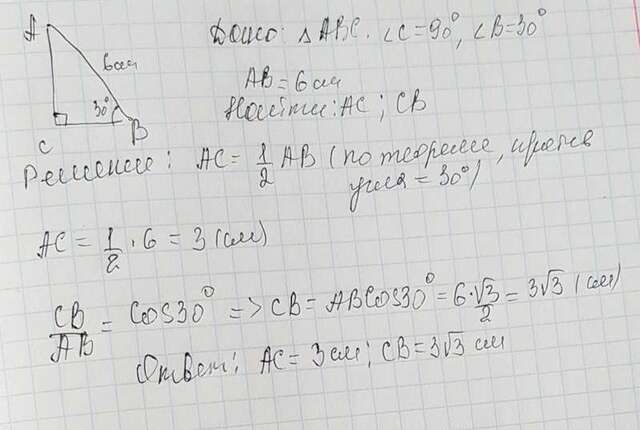 A
6см
30°
C
B
Дано: △ABC. ∠C=90°, ∠B=30°
AB=6см
Найти: AC; CB
Решение: AC=1/2 AB (по теореме, против
угла=30°)
AC=1/2·6=3(см)
CB/AB=Cos30° => CB=ABCos30°=6·√3/2=3√3(см)
Ответ: AC=3см; CB=3√3 см